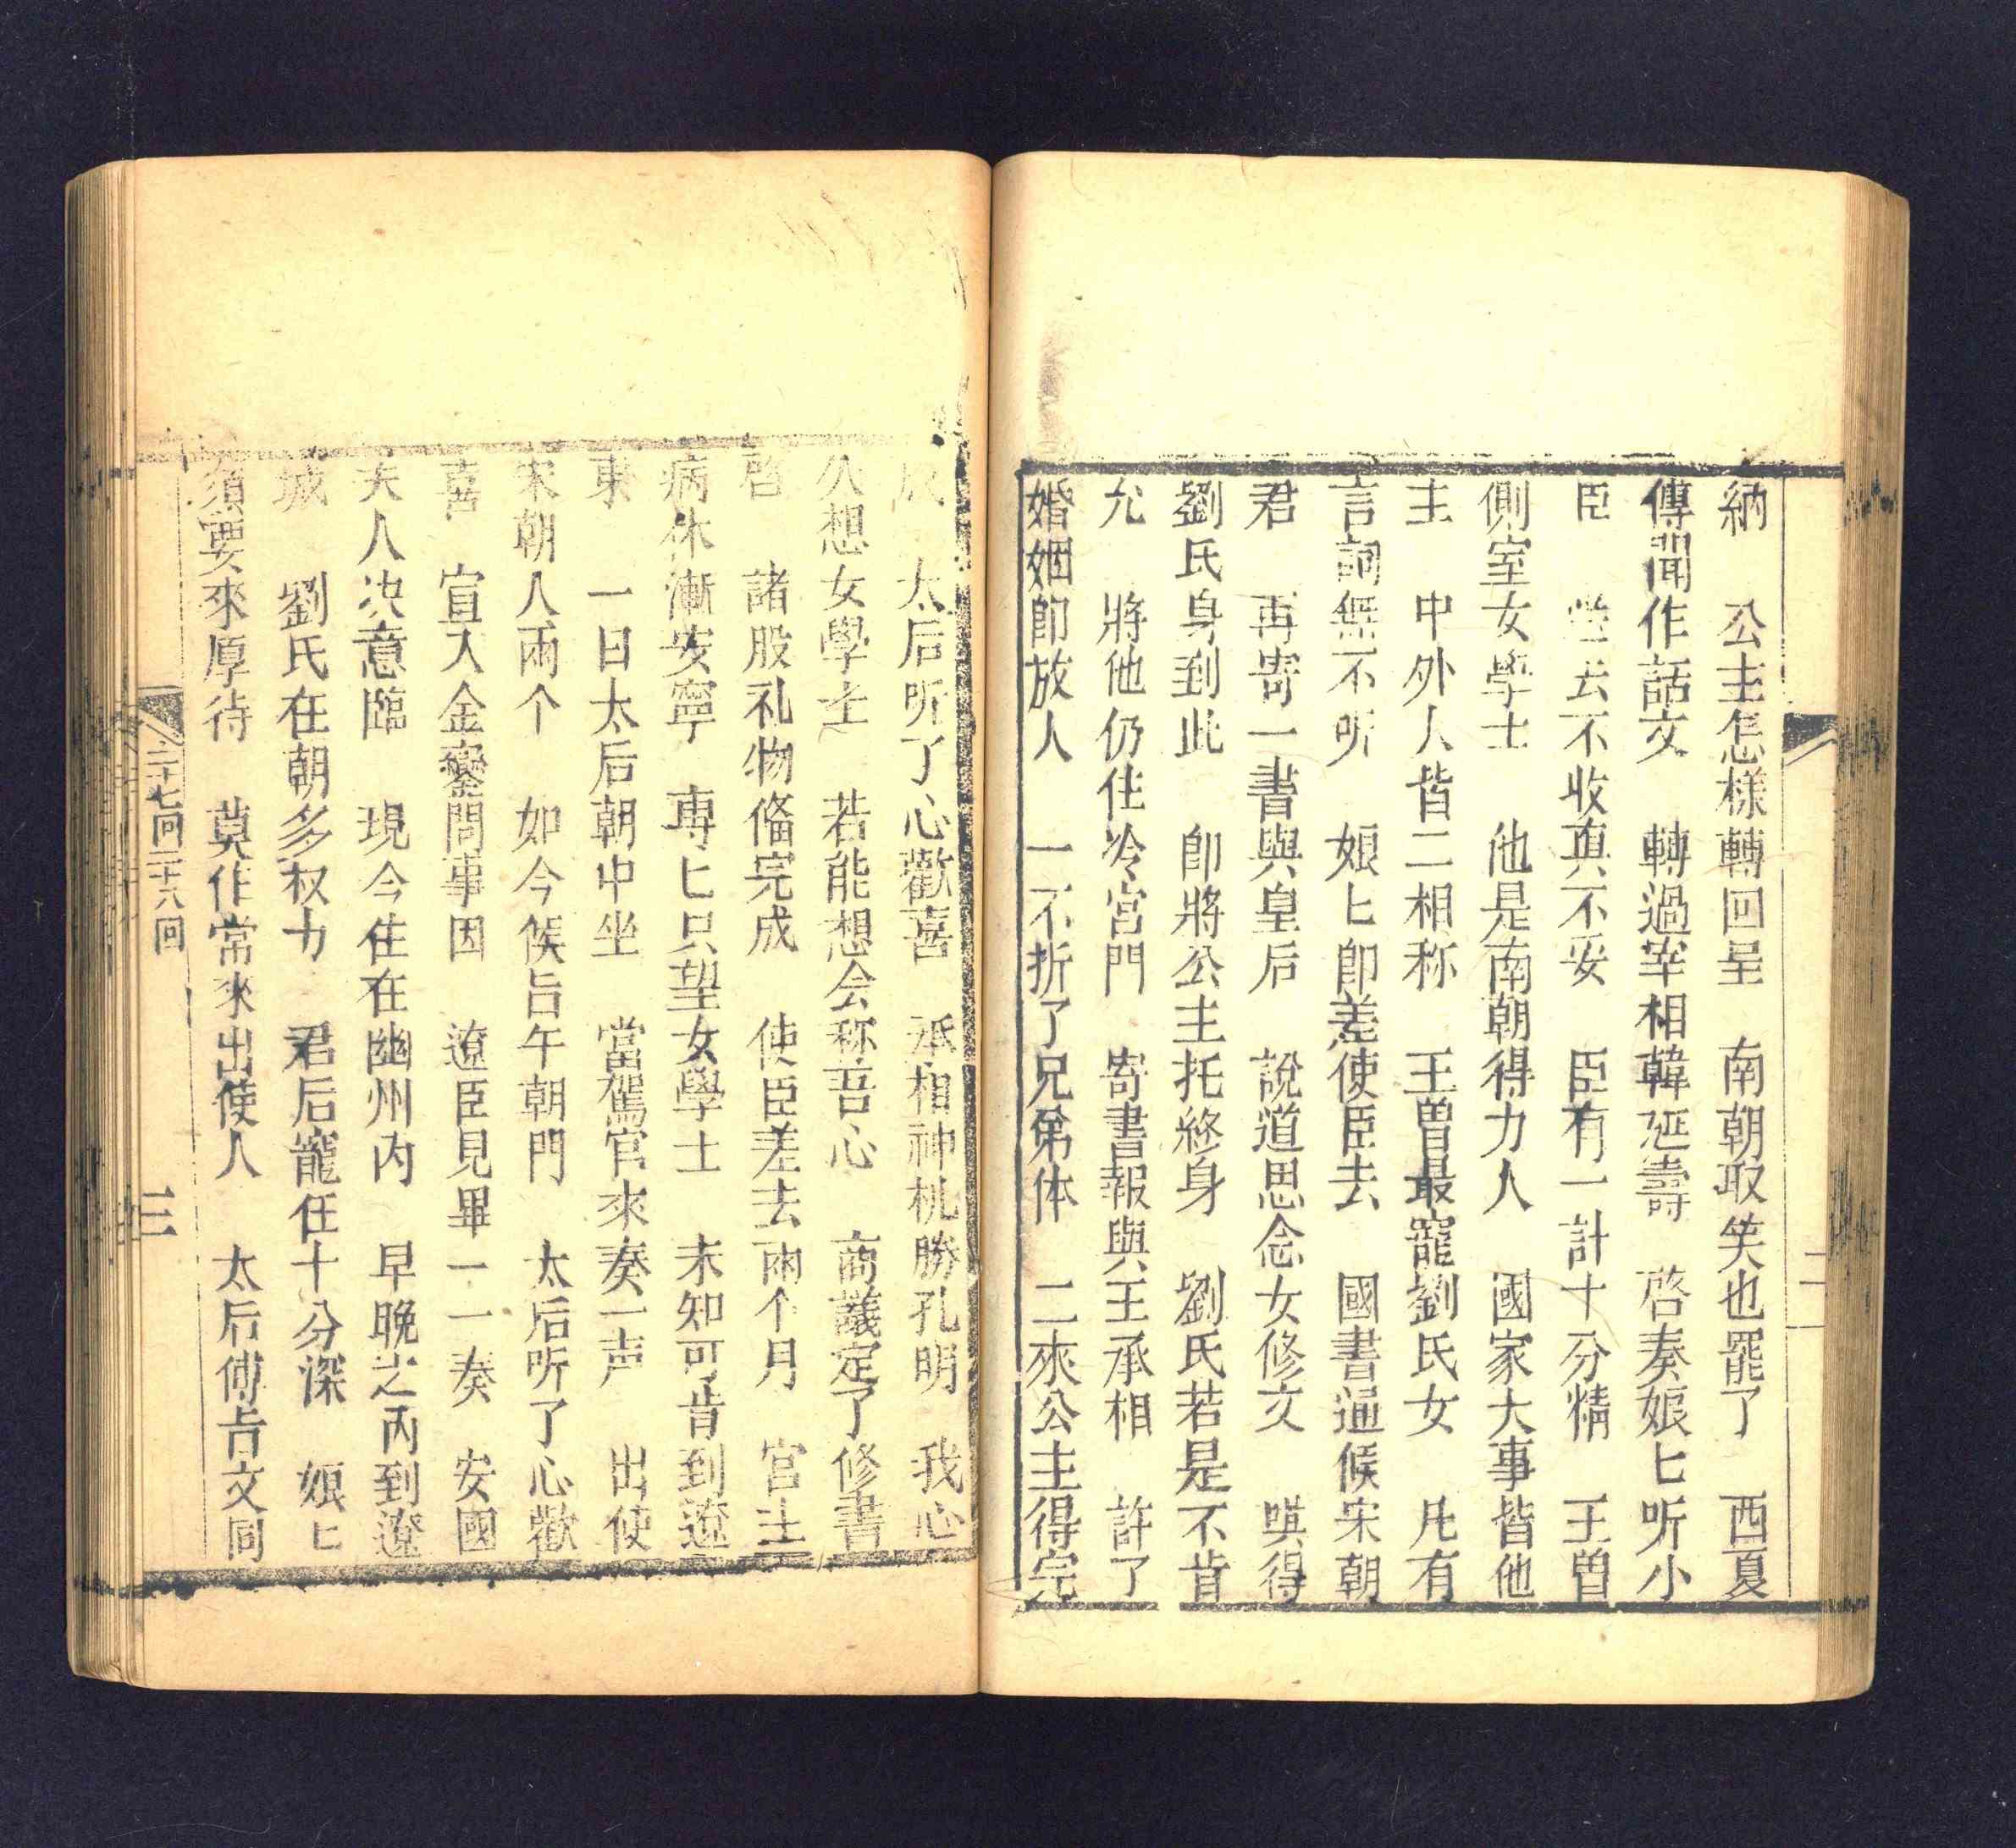 納　公主怎樣轉回呈　南朝取笑也罷了　西夏
傳聞作話文　轉過宰相韓延壽　啓奏娘匕听小
臣　尝去不收真不妥　臣有一計十分精　王曽
側室女學士　他是南朝得力人　國家大事皆他
主　中外人皆二相称　王曽最寵劉氏女　凡有
言詞無不听　娘匕卽差使臣去　國書通候宋朝
君　再寄一書與皇后　說道思念女修文　嘆得
劉氏身到此　卽將公主托終身　劉氏若是不肯
允　將他仍住冷宮門　寄書報與王承相　許了
婚姻卽放人　一不折了兄弟体　二來公主得完
成　太后听了心歡喜　承相神机勝孔明　我心
久想女學士　若能想会称吾心　商議定了修書
啓　諸股礼物俻完成　使臣差去兩个月　官主
病体漸安寧　専匕只望女學士　未知可肯到遼
東　一日太后朝中坐　當駕官來奏一声　出使
宋朝人兩个　如今候旨午朝門　太后听了心歡
喜　宣入金鑾問事因　遼臣見畢一一奏　安國
夫人决意臨　現今住在幽州内　早晚之丙到遼
城　劉氏在朝多权力　君后寵任十分深　娘匕
須要來厚待　莫作常來出使人　太后傳旨文同
二十七回二十八回　三